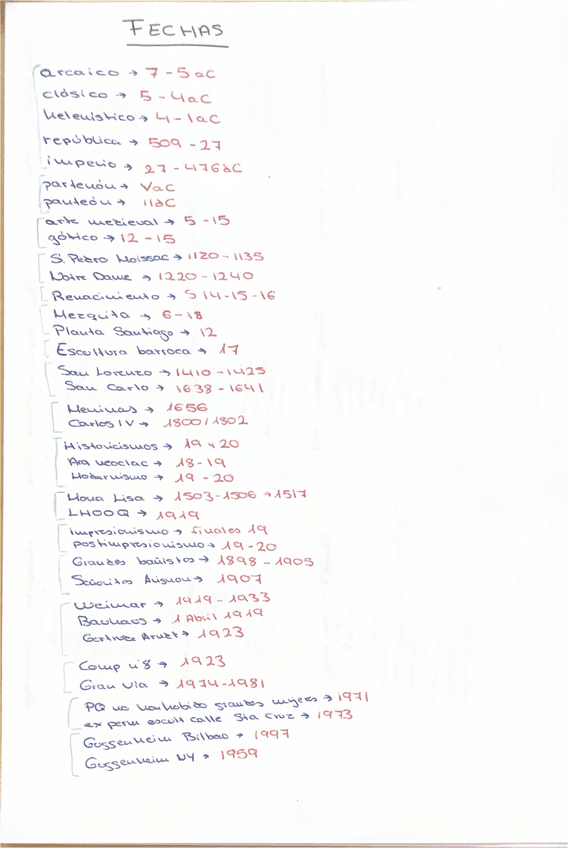 FECHAS
arcaico → 7 - 5 aC
clásico → 5 - 4 aC
helenístico → 4 - 1 aC
república → 509 - 27
imperio → 27 - 476 dC
partenón → V aC
panteón → II dC
arte medieval → 5 - 15
gótico → 12 - 15
S. Pedro Moissac → 1120 - 1135
Notre Dame → 1220 - 1240
Renacimiento → S 14 - 15 - 16
Mezquita → 6 - 18
Planta Santiago → 12
Escultura barroca → 17
San Lorenzo → 1410 - 1425
San Carlo → 1638 - 1641
Meninas → 1656
Carlos IV → 1800 / 1802
Historicismos → 19 y 20
Arq neoclac → 18 - 19
Modernismo → 19 - 20
Mona Lisa → 1503 - 1506 → 1517
LHOOQ → 1919
impresionismo → finales 19
postimpresionismo → 19 - 20
Grandes bañistas → 1898 - 1905
Señoritas Avignon → 1907
Weimar → 1919 - 1933
Bauhaos → 1 Abril 1919
Gertrude Arndt → 1923
Comp nº8 → 1923
Gran Via → 1974 - 1981
PQ no han habido grandes mujeres → 1971
ex perm escult calle Sta Cruz → 1973
Guggenheim Bilbao → 1997
Guggenheim NY → 1959